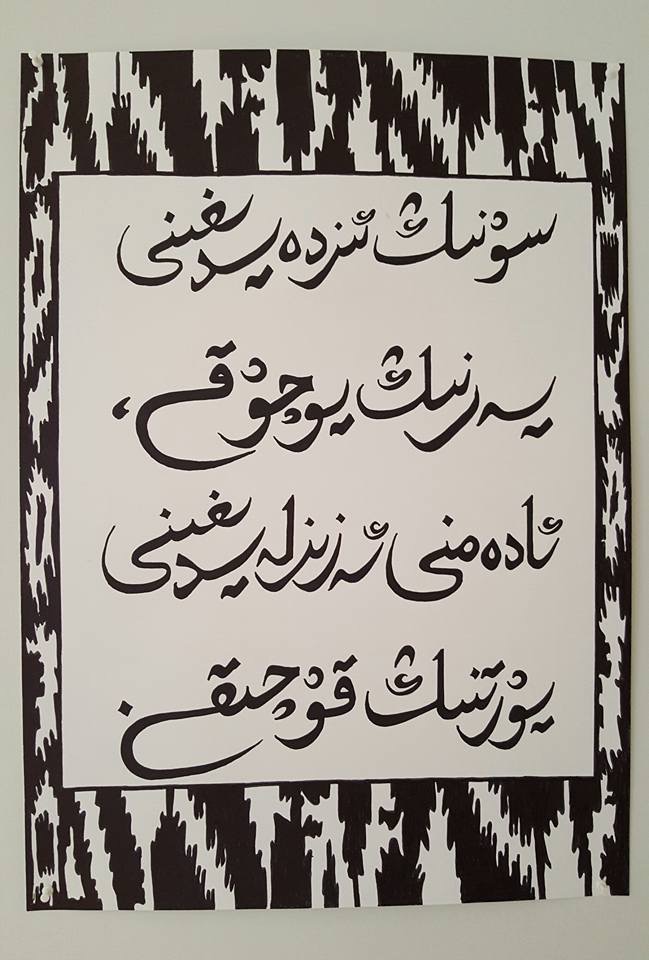 سۇنىڭ ئىزدەيدىغىنى
يەرنىڭ يوچۇقى،
ئادەمنى ئەزىزلەيدىغىنى
يۇرتنىڭ قۇچىقى.